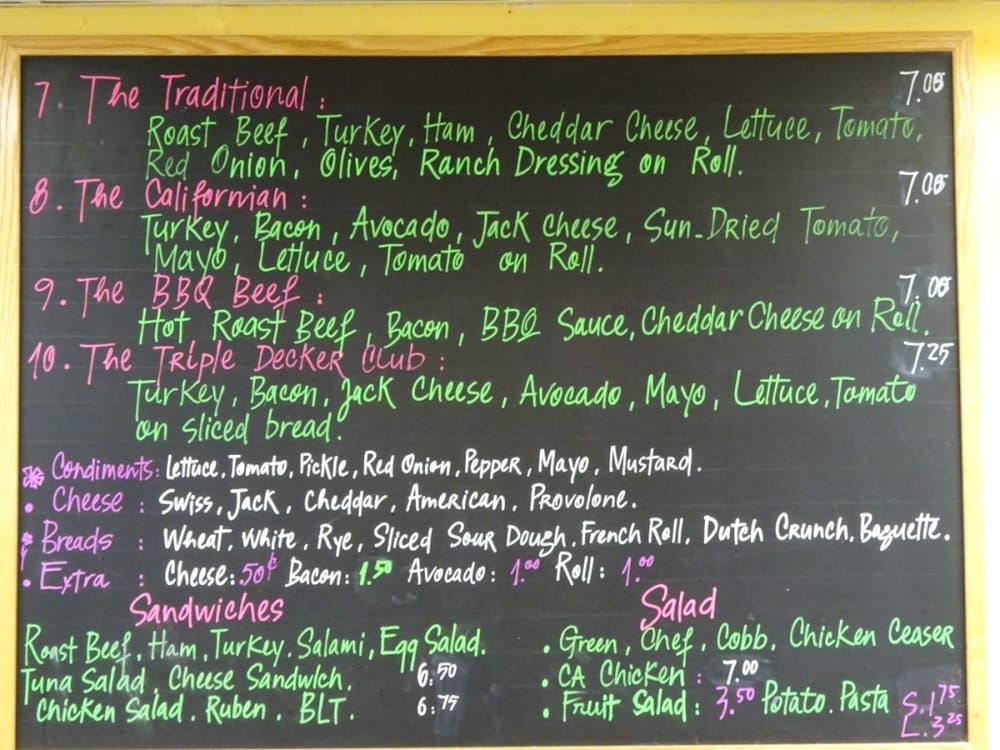 7. The Traditional : 7.00
Roast Beef, Turkey, Ham, Cheddar Cheese, Lettuce, Tomato,
Red Onion, Olives, Ranch Dressing on Roll.
8. The Californian : 7.00
Turkey, Bacon, Avocado, Jack Cheese, Sun-Dried Tomato,
Mayo, Lettuce, Tomato on Roll.
9. The BBQ Beef : 7.00
Hot Roast Beef, Bacon, BBQ Sauce, Cheddar Cheese on Roll.
10. The Triple Decker Club : 7.25
Turkey, Bacon, Jack Cheese, Avocado, Mayo, Lettuce, Tomato
on sliced bread.
Condiments: Lettuce, Tomato, Pickle, Red Onion, Pepper, Mayo, Mustard.
• Cheese : Swiss, Jack, Cheddar, American, Provolone.
Breads : Wheat, White, Rye, Sliced Sour Dough, French Roll, Dutch Crunch, Baguette.
• Extra : Cheese: 50¢ Bacon: 1.50 Avocado: 1.00 Roll: 1.00
Sandwiches
Roast Beef, Ham, Turkey, Salami, Egg Salad.
Tuna Salad, Cheese Sandwich. 6.50
Chicken Salad. Ruben. BLT. 6.75
Salad
• Green, Chef, Cobb, Chicken Ceaser
• CA Chicken : 7.00
• Fruit Salad : 3.50 Potato. Pasta S. 1.75
L. 3.25